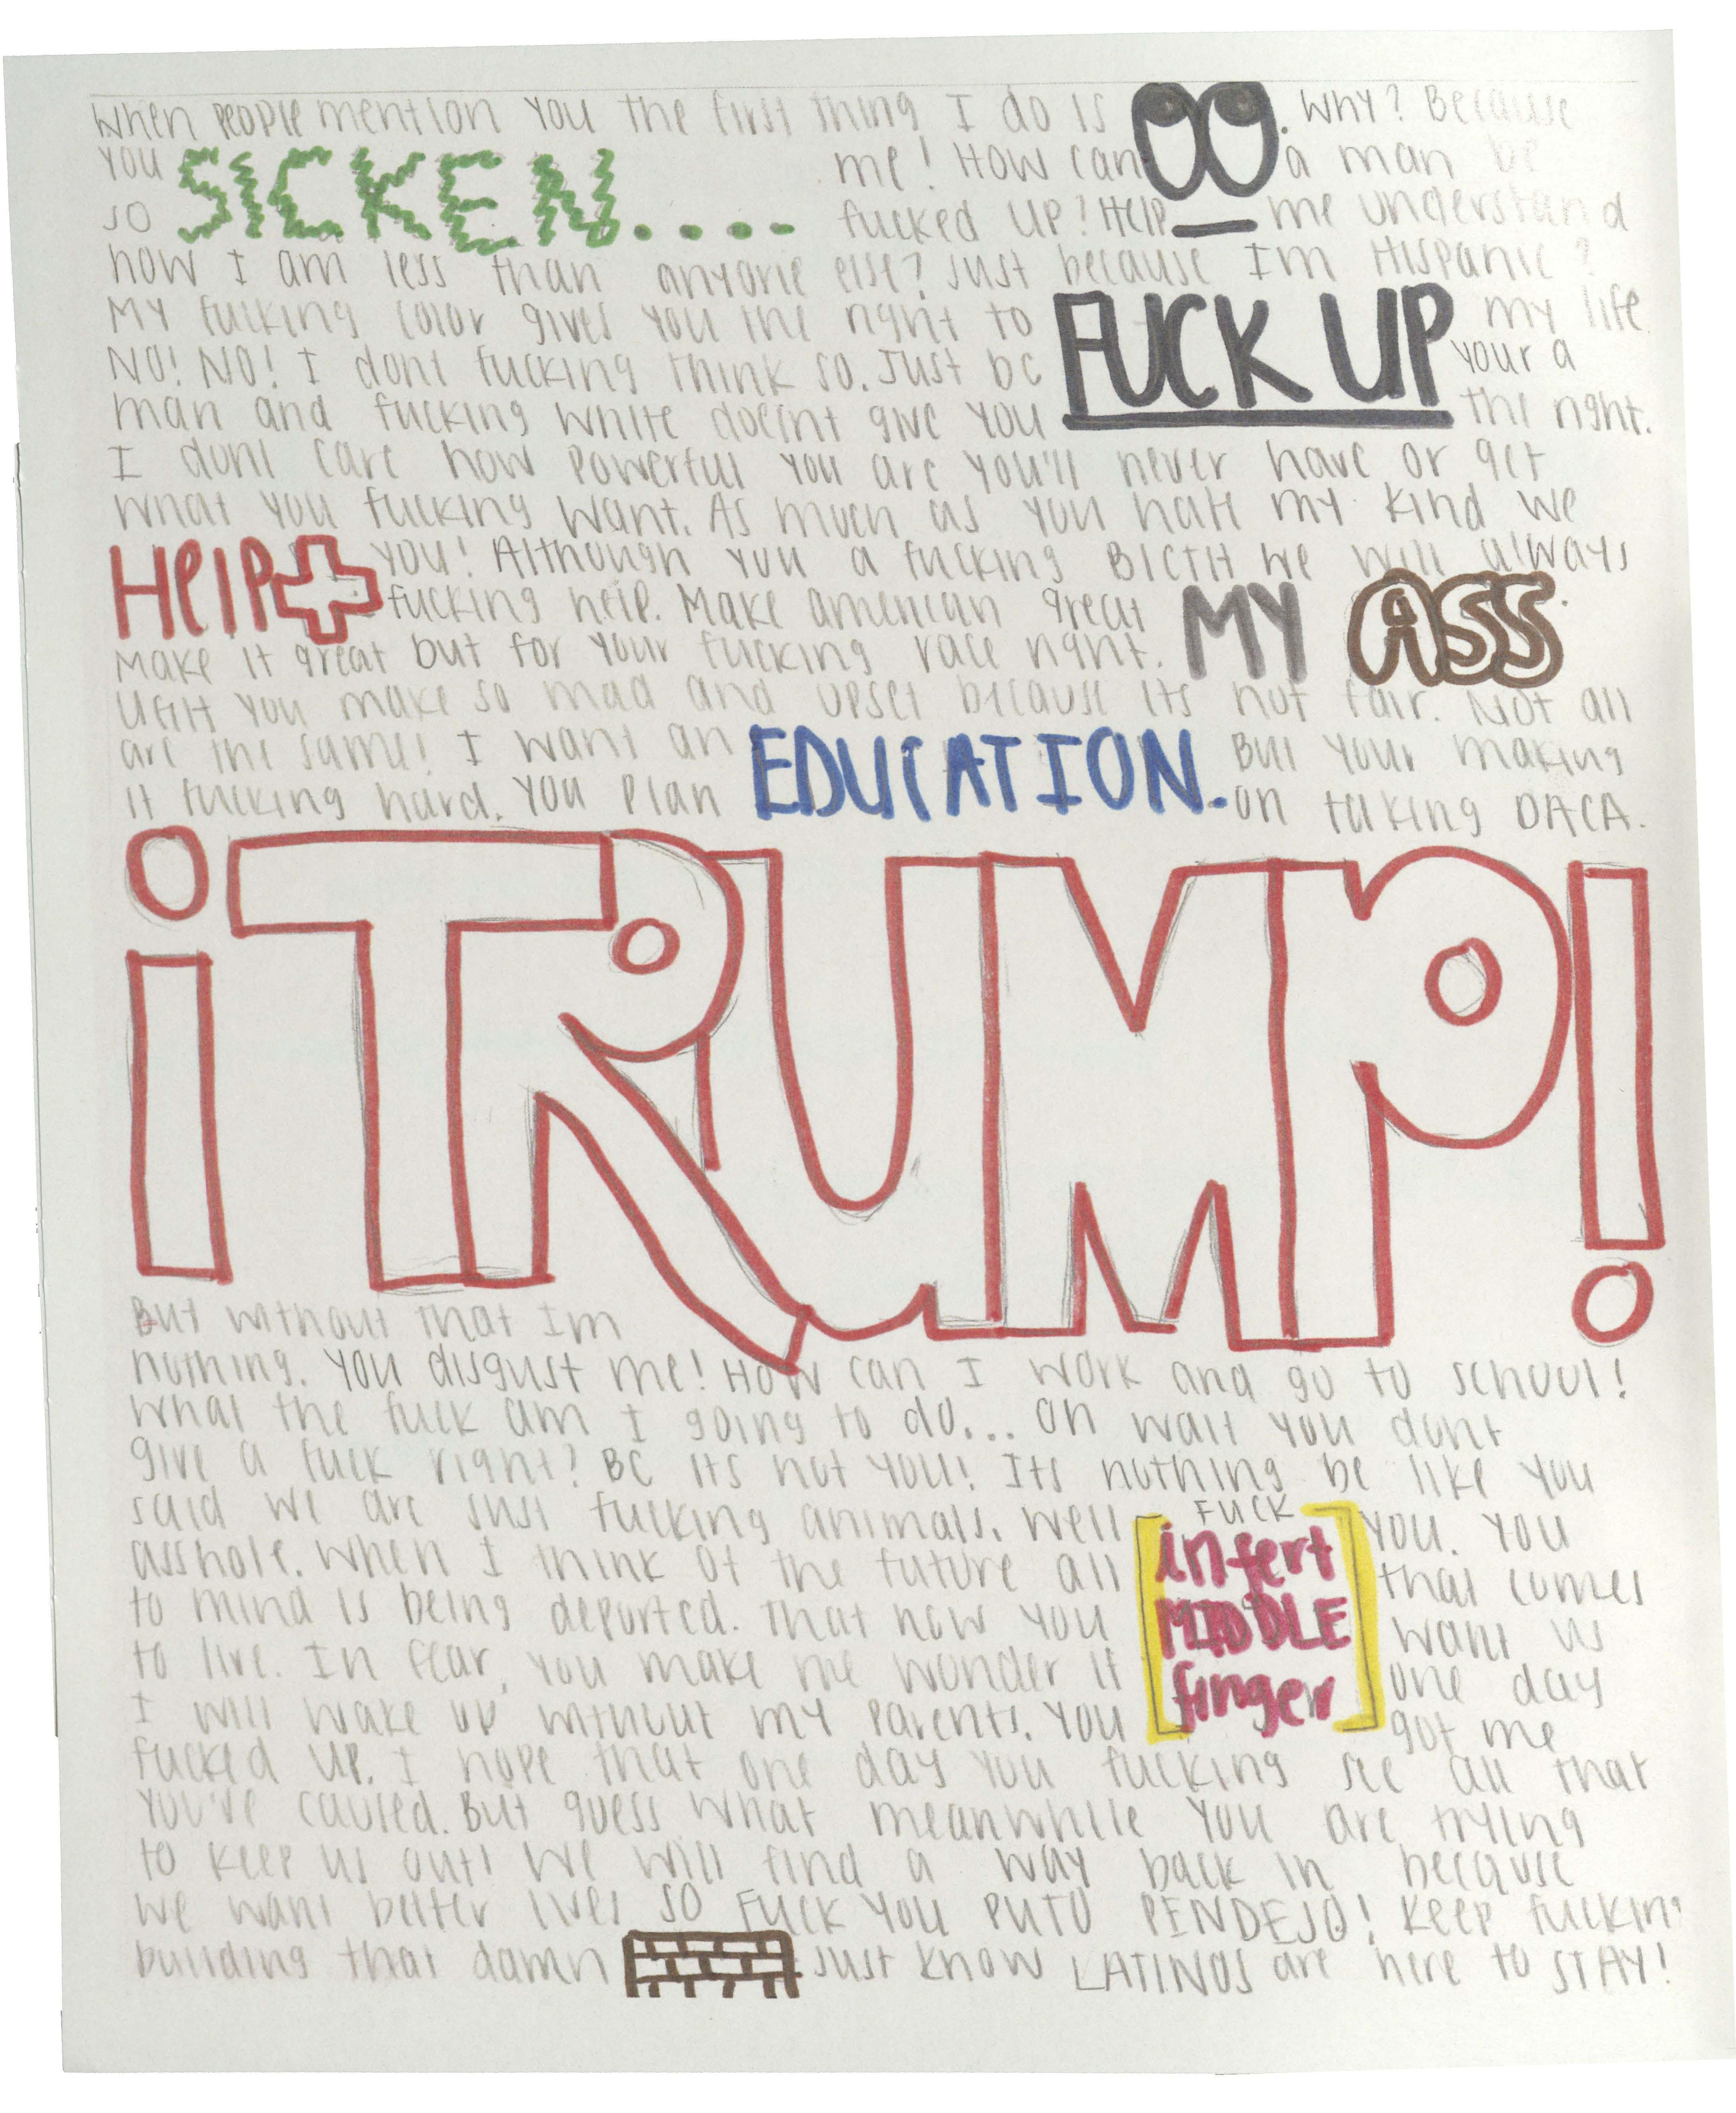 When people mention you the first thing I do is . Why? Because
you SICKEN.... me! How can a man be
so fucked up? Help me understand
how I am less than anyone else? Just because Im Hispanic?
My fucking color gives you the right to FUCK UP my life.
NO! NO! I dont fucking think so. Just bc your a
man and fucking white doesnt give you the right.
I dont care how powerful you are you'll never have or get
what you fucking want. As much as you hate my kind we
HelP you! Although you a fucking BICTH we will always
fucking help. Make american great MY ASS.
Make it great but for your fucking race right.
UGH you make so mad and upset because its not fair. Not all
are the same! I want an EDUCATION. But your making
it fucking hard. You plan on taking DACA.
¡TRUMP!
But without that Im
nothing. You disgust me! How can I work and go to school!
What the fuck am I going to do... oh wait you dont
give a fuck right? BC its not you! Its nothing be like you
said we are just fucking animals. Well FUCK you. You
[insert
MIDDLE
finger]
asshole. When I think of the future all that comes
to mind is being deported. That how you want us
to live. In fear, you make me wonder if one day
I will wake up without my parents. You got me
fucked up. I hope that one day you fucking see all that
you've caused. But guess what meanwhile you are trying
to keep us out! We will find a way back in because
we want better lives so FUCK YOU PUTO PENDEJO! Keep fucking
building that damn Just know LATINOS are here to STAY!